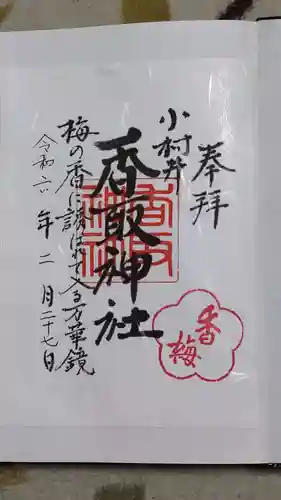 奉拝
小村井
香取神社
梅の香に誘はれて入る万華鏡
令和六年二月二十七日
香梅